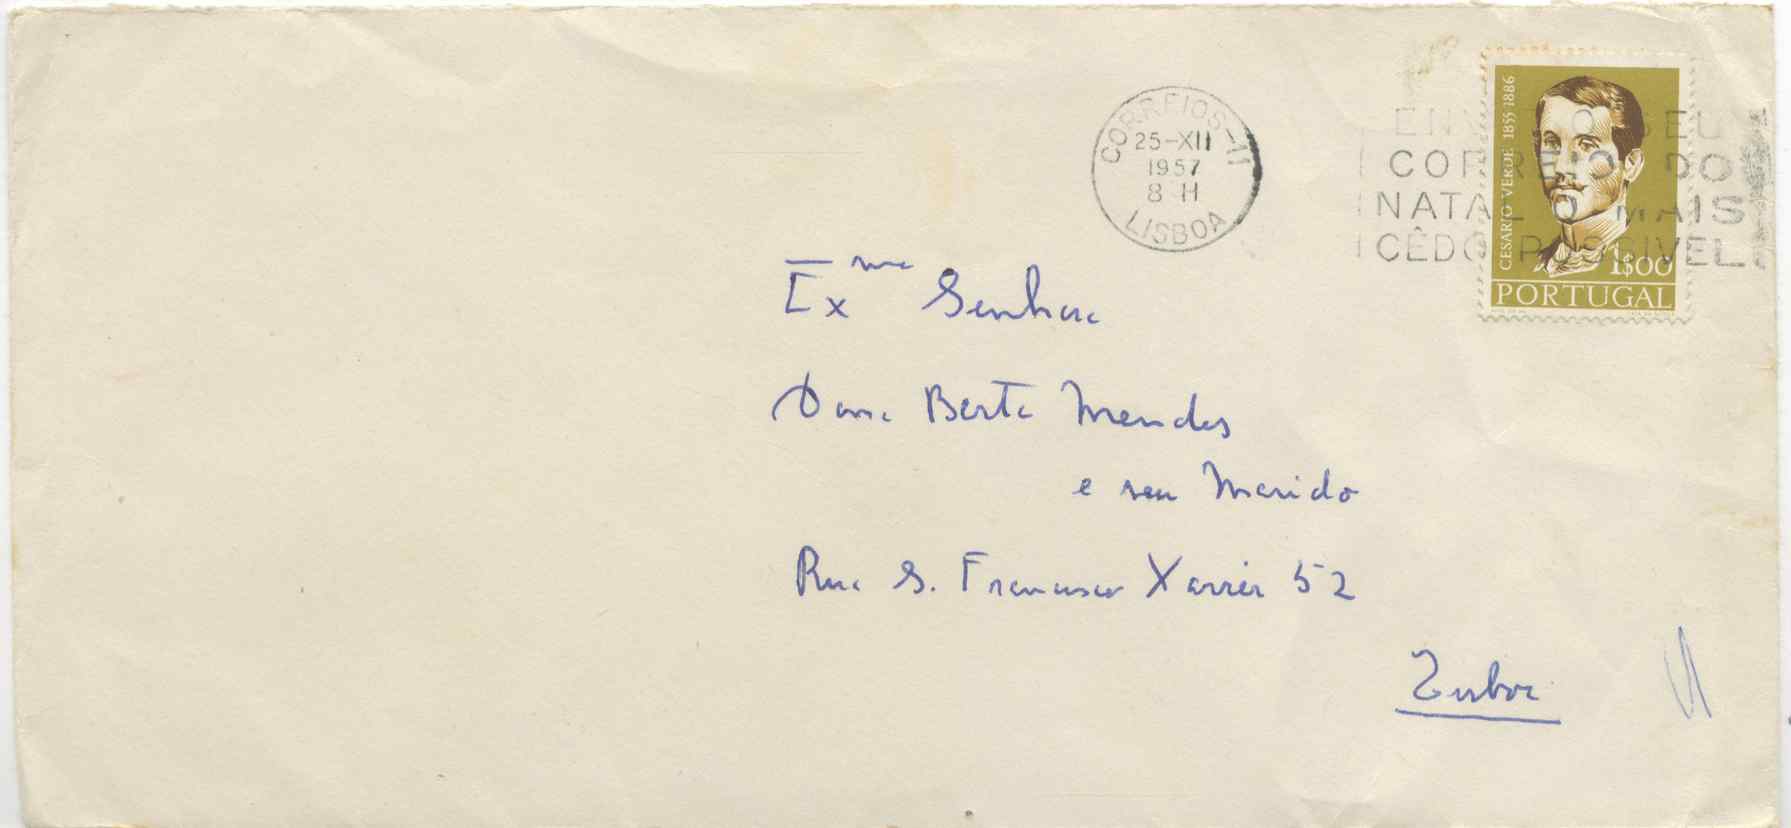 CORREIOS-11
25-XII
1957
8 H
LISBOA
ENVIE O SEU
CORREIO DO
NATAL O MAIS
CÊDO POSSIVEL
CESARIO VERDE 1855 1886
1$00
PORTUGAL
Exma Senhora
Dona Berta Mendes
e seu Marido
Rua S. Francisco Xavier 52
Lisboa